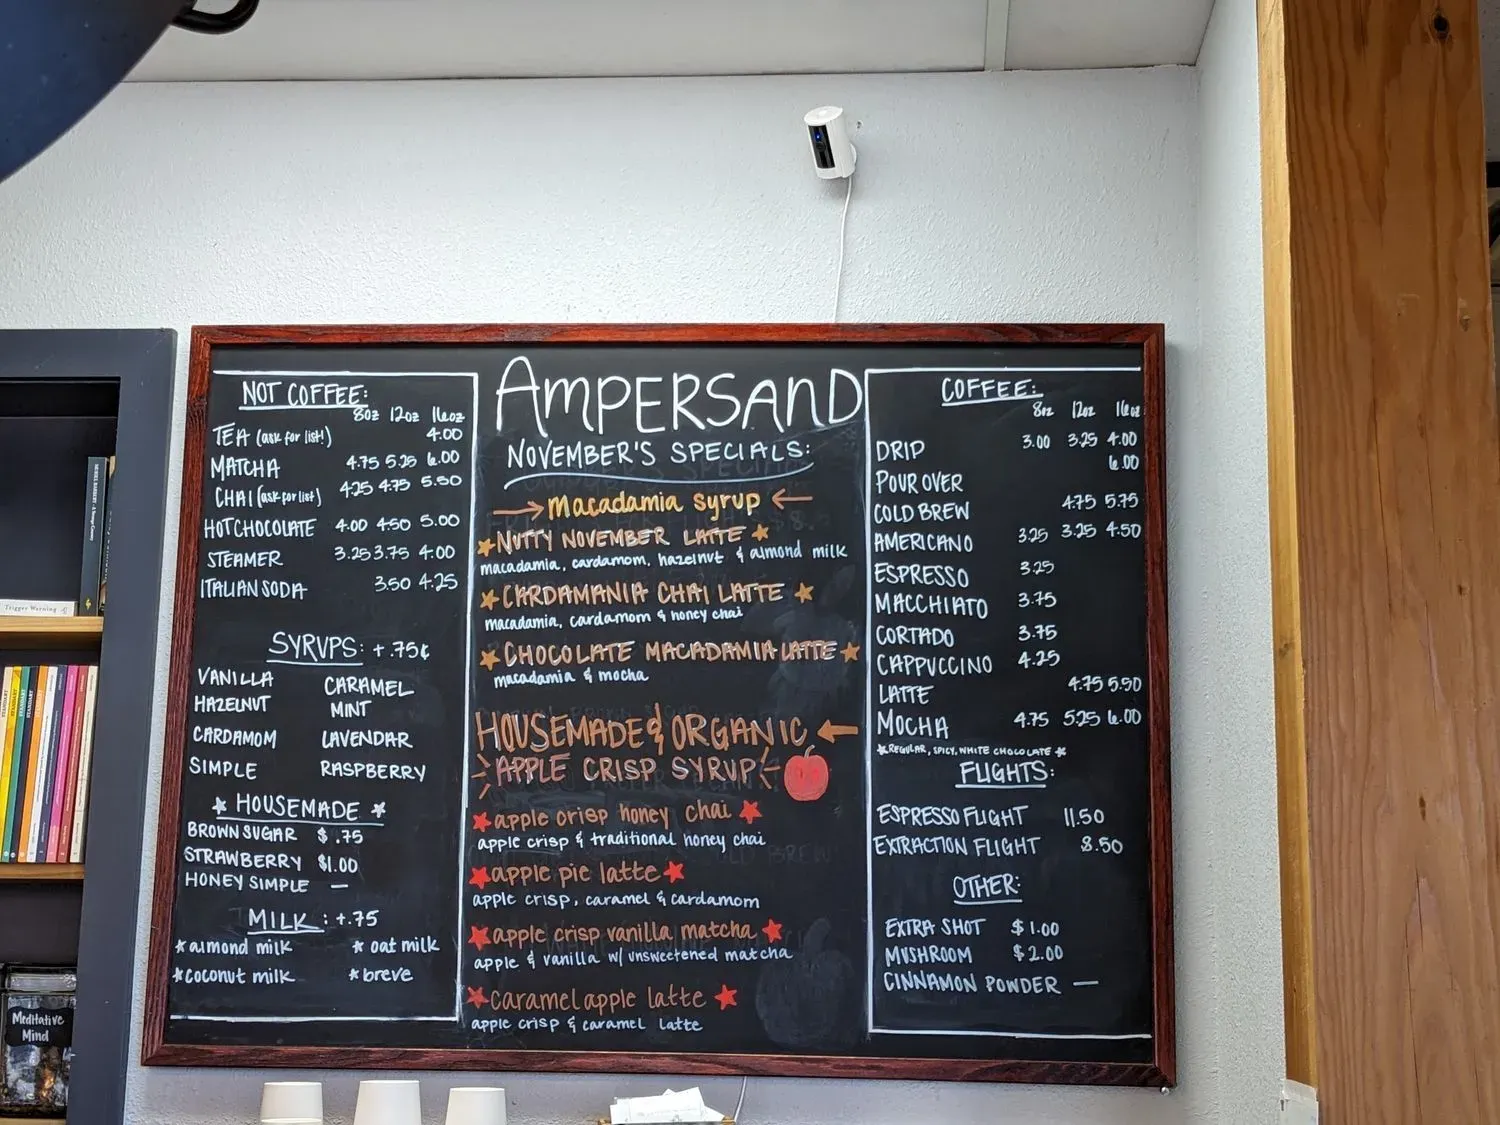 AMPERSAND
NOT COFFEE:
8oz 12oz 16oz
TEA (ask for list!) 4.00
MATCHA 4.75 5.25 6.00
CHAI (ask for list) 4.25 4.75 5.50
HOT CHOCOLATE 4.00 4.50 5.00
STEAMER 3.25 3.75 4.00
ITALIAN SODA 3.50 4.25
SYRUPS: +.75¢
VANILLA CARAMEL
HAZELNUT MINT
CARDAMOM LAVENDAR
SIMPLE RASPBERRY
★ HOUSEMADE ★
BROWN SUGAR $ .75
STRAWBERRY $1.00
HONEY SIMPLE —
MILK : +.75
* almond milk * oat milk
* coconut milk * breve
NOVEMBER'S SPECIALS:
→ macadamia syrup ←
★ NUTTY NOVEMBER LATTE ★
macadamia, cardamom, hazelnut & almond milk
★ CARDAMANIA CHAI LATTE ★
macadamia, cardamom & honey chai
★ CHOCOLATE MACADAMIA LATTE ★
macadamia & mocha
HOUSEMADE & ORGANIC ←
APPLE CRISP SYRUP
★ apple crisp honey chai ★
apple crisp & traditional honey chai
★ apple pie latte ★
apple crisp, caramel & cardamom
★ apple crisp vanilla matcha ★
apple & vanilla w/ unsweetened matcha
★ caramel apple latte ★
apple crisp & caramel latte
COFFEE:
8oz 12oz 16oz
DRIP 3.00 3.25 4.00
POUR OVER 6.00
COLD BREW 4.75 5.75
AMERICANO 3.25 3.25 4.50
ESPRESSO 3.25
MACCHIATO 3.75
CORTADO 3.75
CAPPUCCINO 4.25
LATTE 4.75 5.50
MOCHA 4.75 5.25 6.00
* REGULAR, SPICY, WHITE CHOCOLATE *
FLIGHTS:
ESPRESSO FLIGHT 11.50
EXTRACTION FLIGHT 8.50
OTHER:
EXTRA SHOT $1.00
MUSHROOM $2.00
CINNAMON POWDER —
Trigger Warning
Meditative
Mind